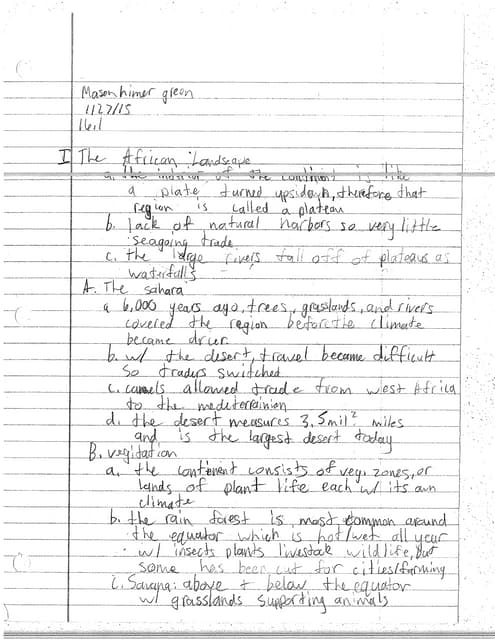 Mason himer green
1/27/15
16.1
I The African Landscape
a. the interior of the continent is like
a plate turned upsidown, therefore that
region is called a plateau
b. lack of natural harbors so very little
seagoing trade
c. the large rivers fall off of plateaus as
waterfalls
A. The sahara
a 6,000 years ago, trees, grasslands, and rivers
covered the region before the climate
became drier
b. w/ the desert, travel became difficult
so traders switched
c. camels allowed trade from west Africa
to the mediterrainian
d. the desert measures 3.5 mil² miles
and is the largest desert today
B. vegitation
a. the continent consists of veg. zones, or
lands of plant life each w/ its own
climate
b. the rain forest is most common around
the equator which is hot/wet all year
w/ insects plants livestock wildlife, but
some has been cut for cities/farming
c. Savana: above + below the equator
w/ grasslands supporting animals